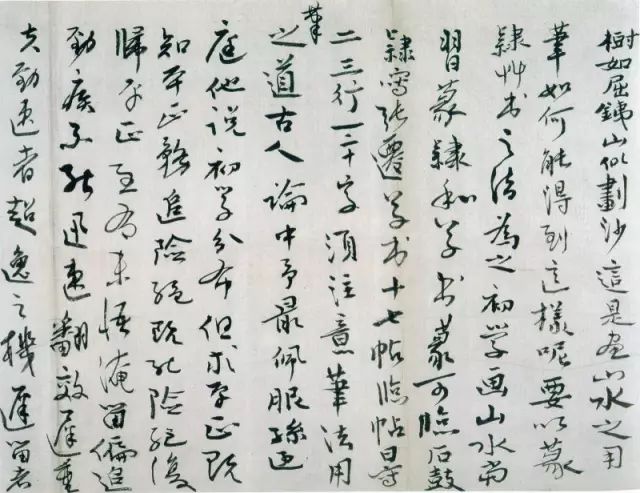 樹如屈銕山似劃沙這是畫山水之用
筆如何能得到這樣呢要以篆
隸艸書之法為之初學画山水當
習篆隸和草書篆可臨石鼓
隸寫張遷草書十七帖臨帖日寫
二三行一二十字須注意筆法用
筆之道古人論中予最佩服孫過
庭他說初學分布但求平正既
知平正務追險絕既能險絕復
歸平正至有未悟淹留偏追
勁疾不能迅速翻效遲重
夫勁速者超逸之機遲留者